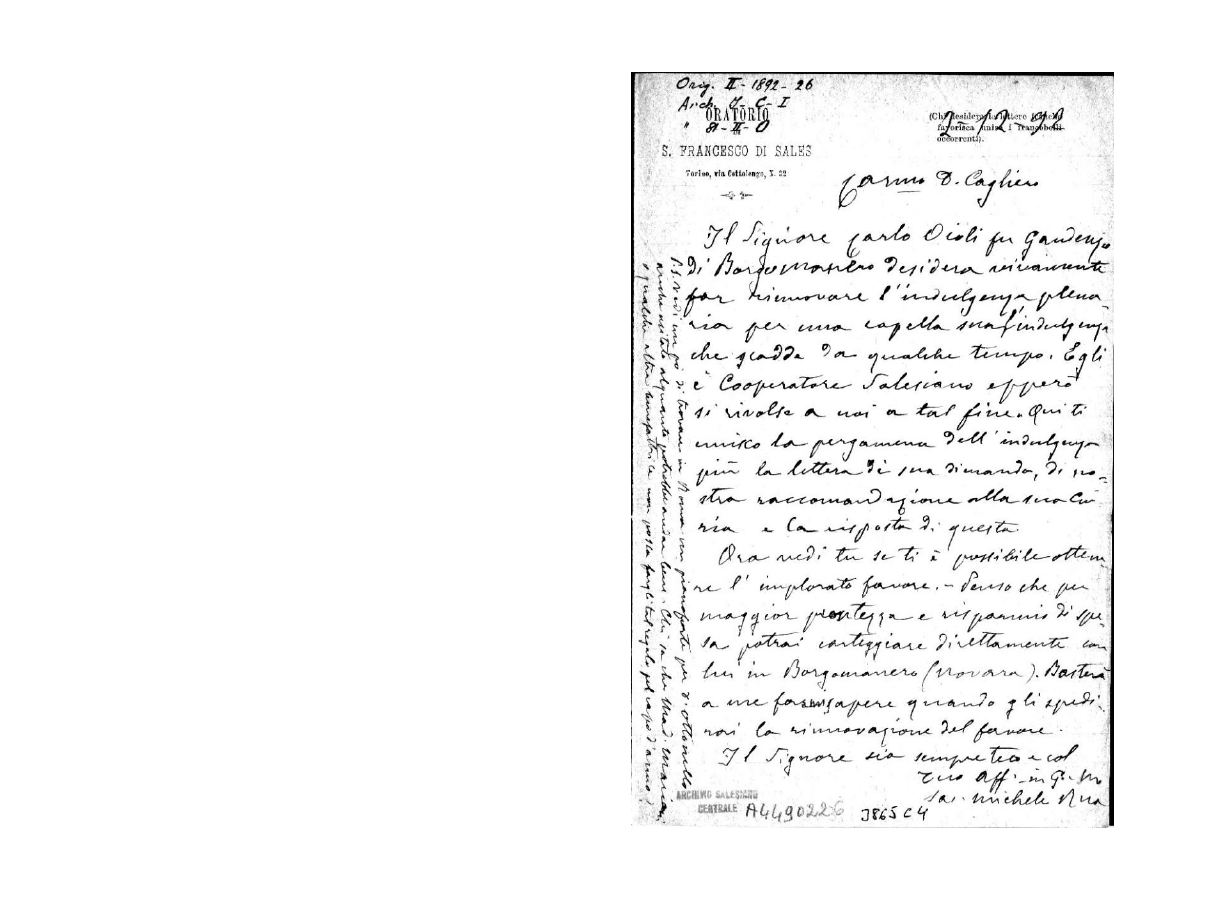 Orig. II - 1892 - 26
Arch. J - C - I
ORATORIO
" 81 - II - O
S. FRANCESCO DI SALES
Torino, via Cottolengo, N. 32
(Chi desidera lettere
favorisca unire i francobolli
occorrenti).
2-12-
Carmo D. Cagliero
Il Signore Carlo Violi fu Gaudenzio
di Borgomanero desidera vivamente
far rinnovare l'indulgenza plena-
ria per una capella sua, indulgenza
che scadde da qualche tempo. Egli
è Cooperatore Salesiano epperò
si rivolse a noi a tal fine. Qui ti
unisco la pergamena dell'indulgenza
più la lettera di sua dimanda, di no-
stra raccomandazione alla sua Cu-
ria e la risposta di questa.
Ora vedi tu se ti è possibile ottene
re l'implorato favore. - Penso che per
maggior prontezza e risparmio di spe-
sa potrai carteggiare direttamente con
lui in Borgomanero (Novara). Basterà
a me far sapere quando gli spedi-
rai la rinnovazione del favore.
Il Signore sia sempre teco e col
tuo aff. in G. M
Sac. Michele Rua
P.S. Vedi un po' di trovare in Roma un pianoforte per D. Ottonello
anche usato alquanto potrebbe andar bene. Chi sa che Mad. Maria
o qualche altra benefattrice non possa fargli tal regalo pel capo d'anno?
ARCHIVIO SALESIANO
CENTRALE
A4490226
3865 C4